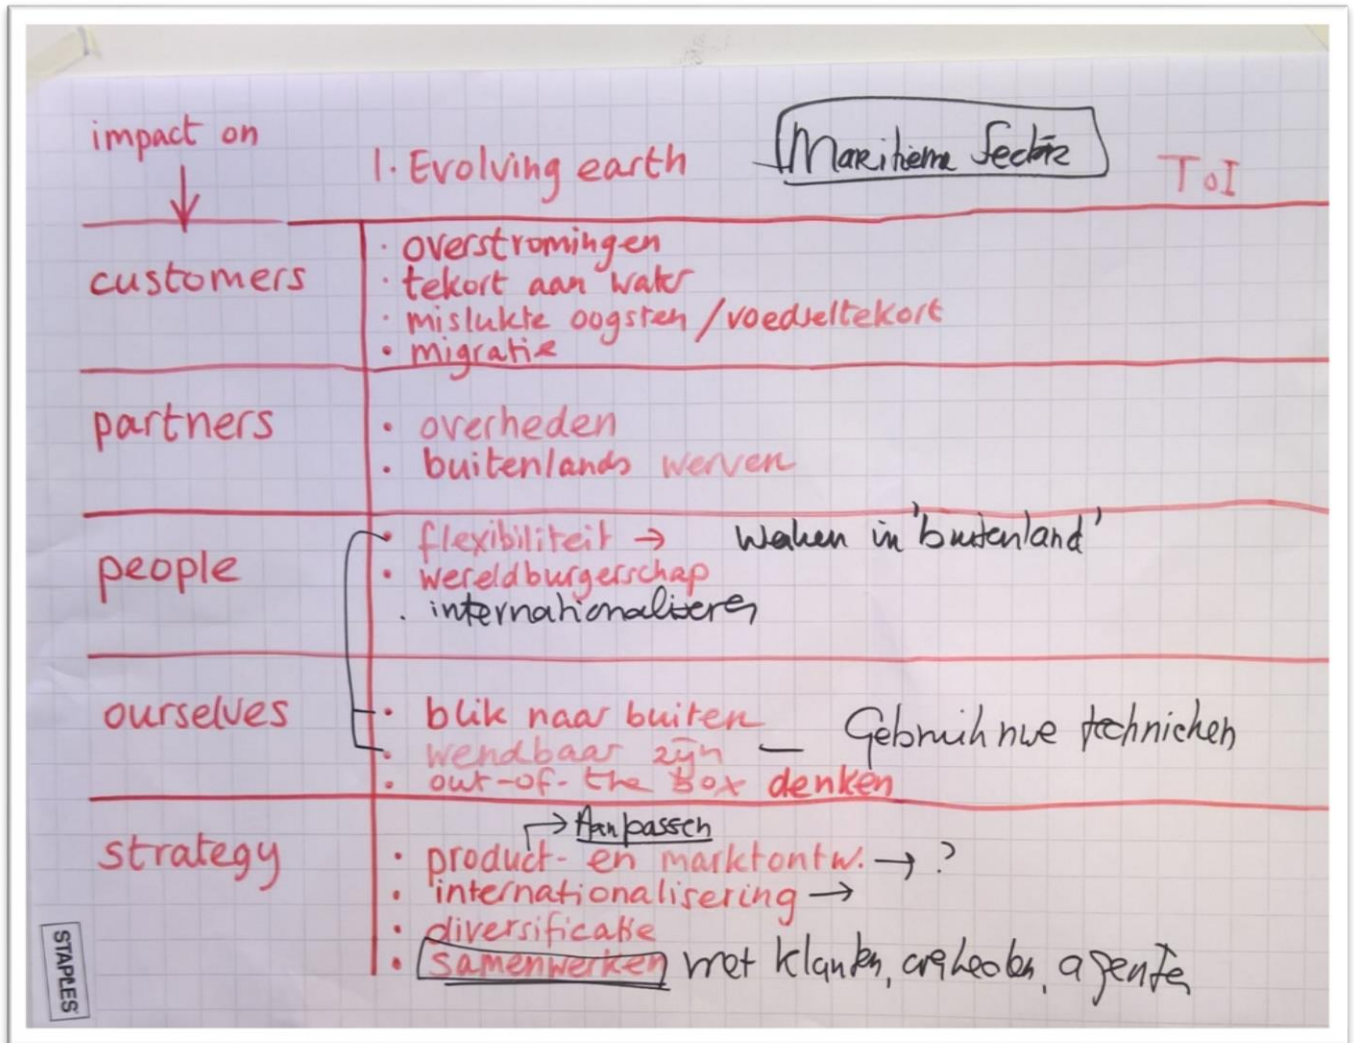 impact on
1. Evolving earth
Maritieme Sector
ToI
customers
· overstromingen
· tekort aan water
· mislukte oogsten / voedseltekort
· migratie
partners
· overheden
· buitenlands werven
people
· flexibiliteit → Werken in 'buitenland'
· wereldburgerschap
· internationaliseren
ourselves
· blik naar buiten
· wendbaar zijn — Gebruik nwe technieken
· out-of-the box denken
strategy
→ Aanpassen
· product- en marktontw. → ?
· internationalisering →
· diversificatie
· samenwerken met klanten, overheden, agenten
STAPLES